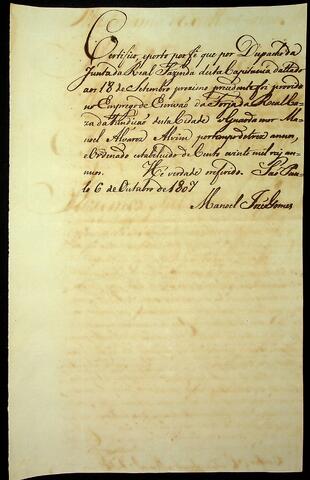 Certifico, e porto por fé que por Despacho da
Junta da Real Fazenda desta Capitania dattado
aos 18 de Setembro proximo precedente foi provido
no Emprego de Escrivão da Forja da Real Ca-
za da Fundicão desta Cidade o Guarda mor Ma-
noel Alvares Alvim por tempo de tres annos,
e Ordenado estabelecido de Cento vinte mil reis an-
nuos. Hé verdade o referido. São Pau-
lo 6 de Outubro de 1807
Manoel José Gomes